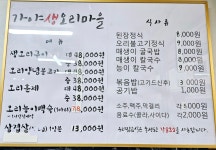 가야생오리마을
메뉴
생오리구이 대 48,000원
중 38,000원
오리양념불고기 대 48,000원
중 38,000원
오리훈제 대 48,000원
중 38,000원
오리능이백숙
삼겹살 13,000원
식사류
된장정식 8,000원
오리불고기정식 9,000원
매생이굴국밥 8,000원
매생이칼국수 9,000원
능이칼국수 9,000원
볶음밥(고기드신후) 3,000원
공기밥 1,000원
소주,맥주,막걸리 각 5,000원
음료수(콜라,사이다) 각 2,000원